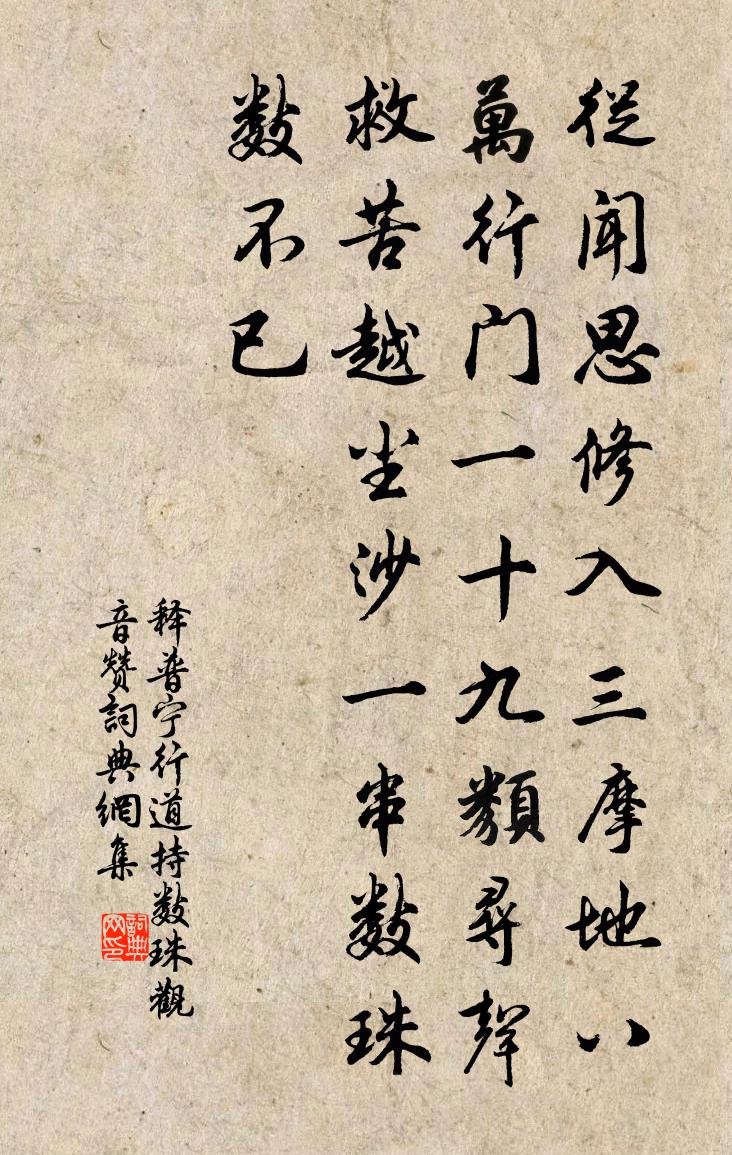 從聞思修入三摩地八
萬行門一十九類尋聲
救苦越塵沙一串數珠
數不已
释普宁行道持數珠觀
音赞詞典網集
詞典网印